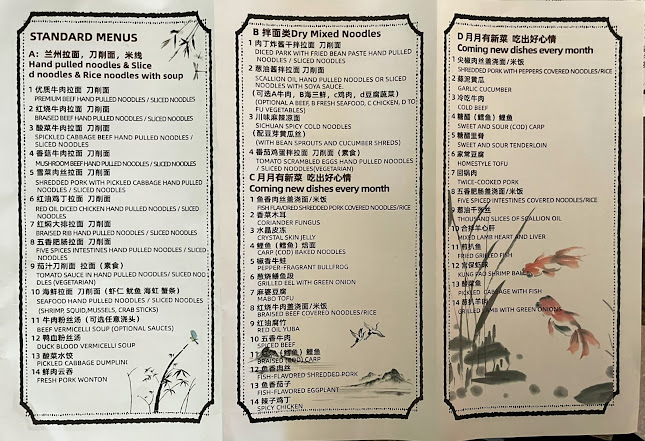 STANDARD MENUS
A：兰州拉面，刀削面，米线
Hand pulled noodles & Slice
d noodles & Rice noodles with soup
1 优质牛肉拉面 刀削面
PREMIUM BEEF HAND PULLED NOODLES / SLICED NOODLES
2 红烧牛肉拉面 刀削面
BRAISED BEEF HAND PULLED NOODLES / SLICED NOODLES
3 酸菜牛肉拉面 刀削面
SPICKLED CABBAGE BEEF HAND PULLED NOODLES /
SLICED NOODLES
4 香菇牛肉拉面 刀削面
MUSHROOM BEEF HAND PULLED NOODLES / SLICED NOODLES
5 雪菜肉丝拉面 刀削面
SHREDDED PORK WITH PICKLED CABBAGE HAND PULLED
NOODLES / SLICED NOODLES
6 红油鸡丁拉面 刀削面
RED OIL DICED CHICKEN HAND PULLED NOODLES /
SLICED NOODLES
7 红焖大排拉面 刀削面
BRAISED RIB HAND PULLED NOODLES / SLICED NOODLES
8 五香肥肠拉面 刀削面
FIVE SPICES INTESTINES HAND PULLED NOODLES /
SLICED NOODLES
9 茄汁刀削面 拉面（素食）
TOMATO SAUCE IN HAND PULLED NOODLES/ SLICED NOO
DLES (VEGETARIAN)
10 海鲜拉面 刀削面（虾仁 鱿鱼 海虹 蟹条）
SEAFOOD HAND PULLED NOODLES / SLICED NOODLES
(SHRIMP, SQUID,MUSSELS, CRAB STICKS)
11 牛肉粉丝汤（可选任意浇头）
BEEF VERMICELLI SOUP (OPTIONAL SAUCES)
12 鸭血粉丝汤
DUCK BLOOD VERMICELLI SOUP
13 酸菜水饺
PICKLED CABBAGE DUMPLINI
14 鲜肉云吞
FRESH PORK WONTON
B 拌面类Dry Mixed Noodles
1 肉丁炸酱干拌拉面 刀削面
DICED PORK WITH FRIED BEAN PASTE HAND PULLED
NOODLES / SLICED NOODLES
2 葱油酱拌拉面 刀削面
SCALLION OIL HAND PULLED NOODLES OR SLICED
NOODLES WITH SOYA SAUCE.
（可选A牛肉，B海三鲜，c鸡肉，d豆腐蔬菜）
(OPTIONAL A BEEF, B FRESH SEAFOOD, C CHICKEN, D TO
FU VEGETABLES)
3 川味麻辣凉面
SICHUAN SPICY COLD NOODLES
（配豆芽黄瓜丝）
(WITH BEAN SPROUTS AND CUCUMBER SHREDS)
4 番茄鸡蛋拌拉面 刀削面（素食）
TOMATO SCRAMBLED EGGS HAND PULLED NOODLES
/ SLICED NOODLES(VEGETARIAN)
C 月月有新菜 吃出好心情
Coming new dishes every month
1 鱼香肉丝盖浇面/米饭
FISH FLAVORED SHREDDED PORK COVERED NOODLES/RICE
2 香菜木耳
CORIANDER FUNGUS
3 水晶皮冻
CRYSTAL SKIN JELLY
4 鲤鱼（鳕鱼）焙面
CARP (COD) BAKED NOODLES
5 椒香牛蛙
PEPPER-FRAGRANT BULLFROG
6 葱烧鳝鱼段
GRILLED EEL WITH GREEN ONION
7 麻婆豆腐
MABO TOFU
8 红烧牛肉盖浇面/米饭
BRAISED BEEF COVERED NOODLES/RICE
9 红油腐竹
RED OIL YUBA
10 五香牛肉
SPICED BEEF
（鳕鱼）鲤鱼
BRAISED (COD) CARP
12 鱼香肉丝
FISH-FLAVORED SHREDDED PORK
13 鱼香茄子
FISH-FLAVORED EGGPLANT
14 辣子鸡丁
SPICY CHICKEN
D 月月有新菜 吃出好心情
Coming new dishes every month
1 尖椒肉丝盖浇面/米饭
SHREDDED PORK WITH PEPPERS COVERED NOODLES/RICE
2 蒜泥黄瓜
GARLIC CUCUMBER
3 冷吃牛肉
COLD BEEF
4 糖醋（鳕鱼）鲤鱼
SWEET AND SOUR (COD) CARP
5 糖醋里脊
SWEET AND SOUR TENDERLOIN
6 家常豆腐
HOMESTYLE TOFU
7 回锅肉
TWICE-COOKED PORK
8 五香肥肠盖浇面/米饭
FIVE SPICED INTESTINES COVERED NOODLES/RICE
9 葱油千张丝
THOUSAND SLICES OF SCALLION OIL
10 合拌羊心肝
MIXED LAMB HEART AND LIVER
11 煎扒鱼
FRIED GRILLED FISH
12 宫保虾球
KUNG PAO SHRIMP BALLS
13 酸菜鱼
PICKLED CABBAGE WITH FISH
14 葱扒羊肉
GRILLED LAMB WITH GREEN ONIONS